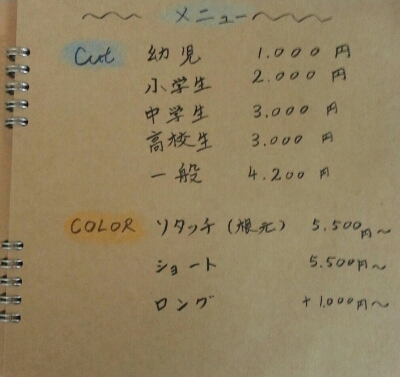 ～ メニュー ～
Cut 幼児 1.000円
小学生 2.000円
中学生 3.000円
高校生 3.000円
一般 4.200円
COLOR リタッチ(根元) 5.500円～
ショート 5.500円～
ロング +1.000円～